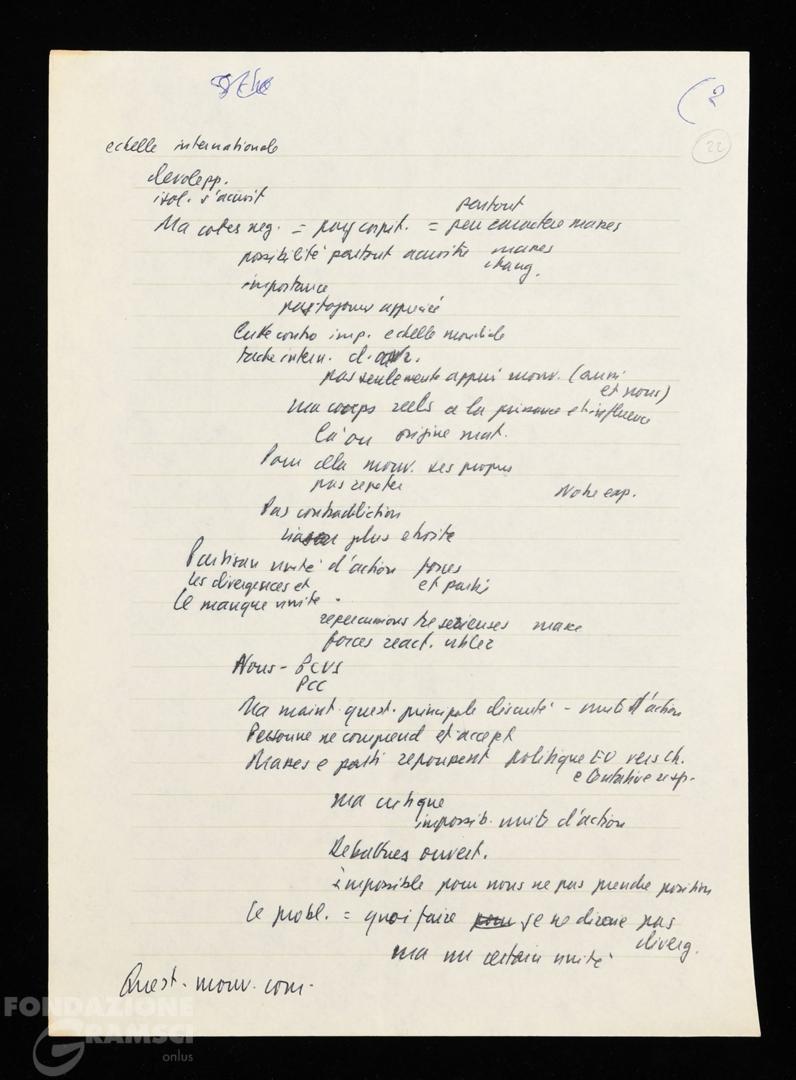 (2
22
echelle internationale
develepp.
isol. s'accroit
partout
Ma cotes neg. = pays capit. = peu caractere masses
possibilité partout accroitre masses
chang.
importance
pas toujours apprécié
Lutte contro imp. echelle mondiale
tache intern. d.
pas seulemente appui mouv. (aussi
et nous)
Ma coups reels a la puissance et influence
Là ou origine mat.
Pour cela mouv. ses propres
pas repeter
Notre exp.
Pas contraddiction
plus etroite
Partisan unité d'action forces
les divergences et et partis
Le manque unité
repercussions tre serieuses masse
forces react. utiliz
Nous - PCUS
PCC
Ma maint. quest. principale discuté - unité d'action
Personne ne comprend et accept
Masses e parti repoussent politique EU vers Ch.
e tentative resp.
ma critique
impossib. unité d'action
Debattues ouvert.
impossible pour nous ne pas prendre position
Le probl. = quoi faire pour je ne discute pas
diverg.
ma un certain unité
Quest. mouv. com.
FONDAZIONE
GRAMSCI
onlus